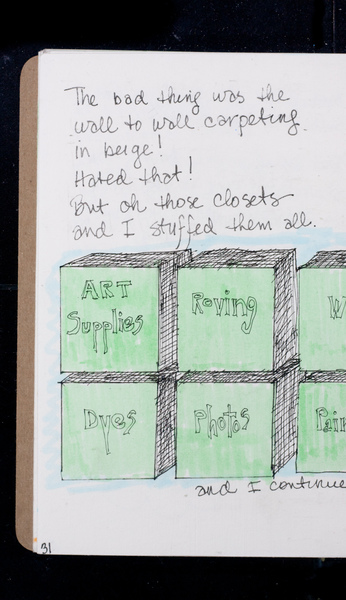 The bad thing was the
wall to wall carpeting
in beige!
Hated that!
But oh those closets
and I stuffed them all.
ART
Supplies
Roving
W
Dyes
Photos
Pain
and I continue
31